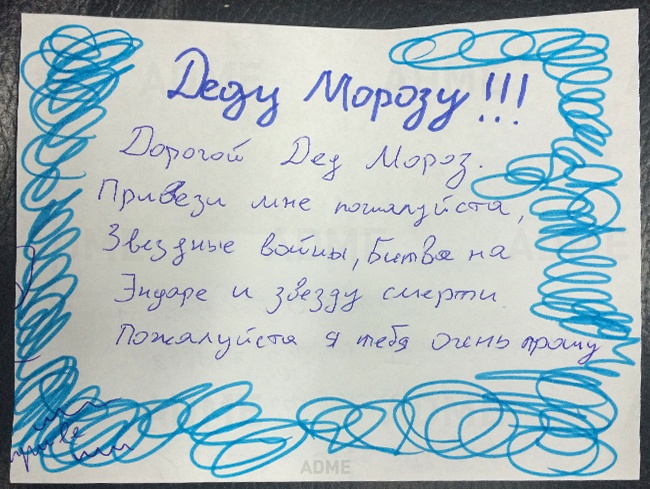 Деду Морозу!!!
Дорогой Дед Мороз.
Привези мне пожалуйста,
Звездные войны, Битва на
Эндоре и звезду смерти.
Пожалуйста я тебя очень прошу
ADME